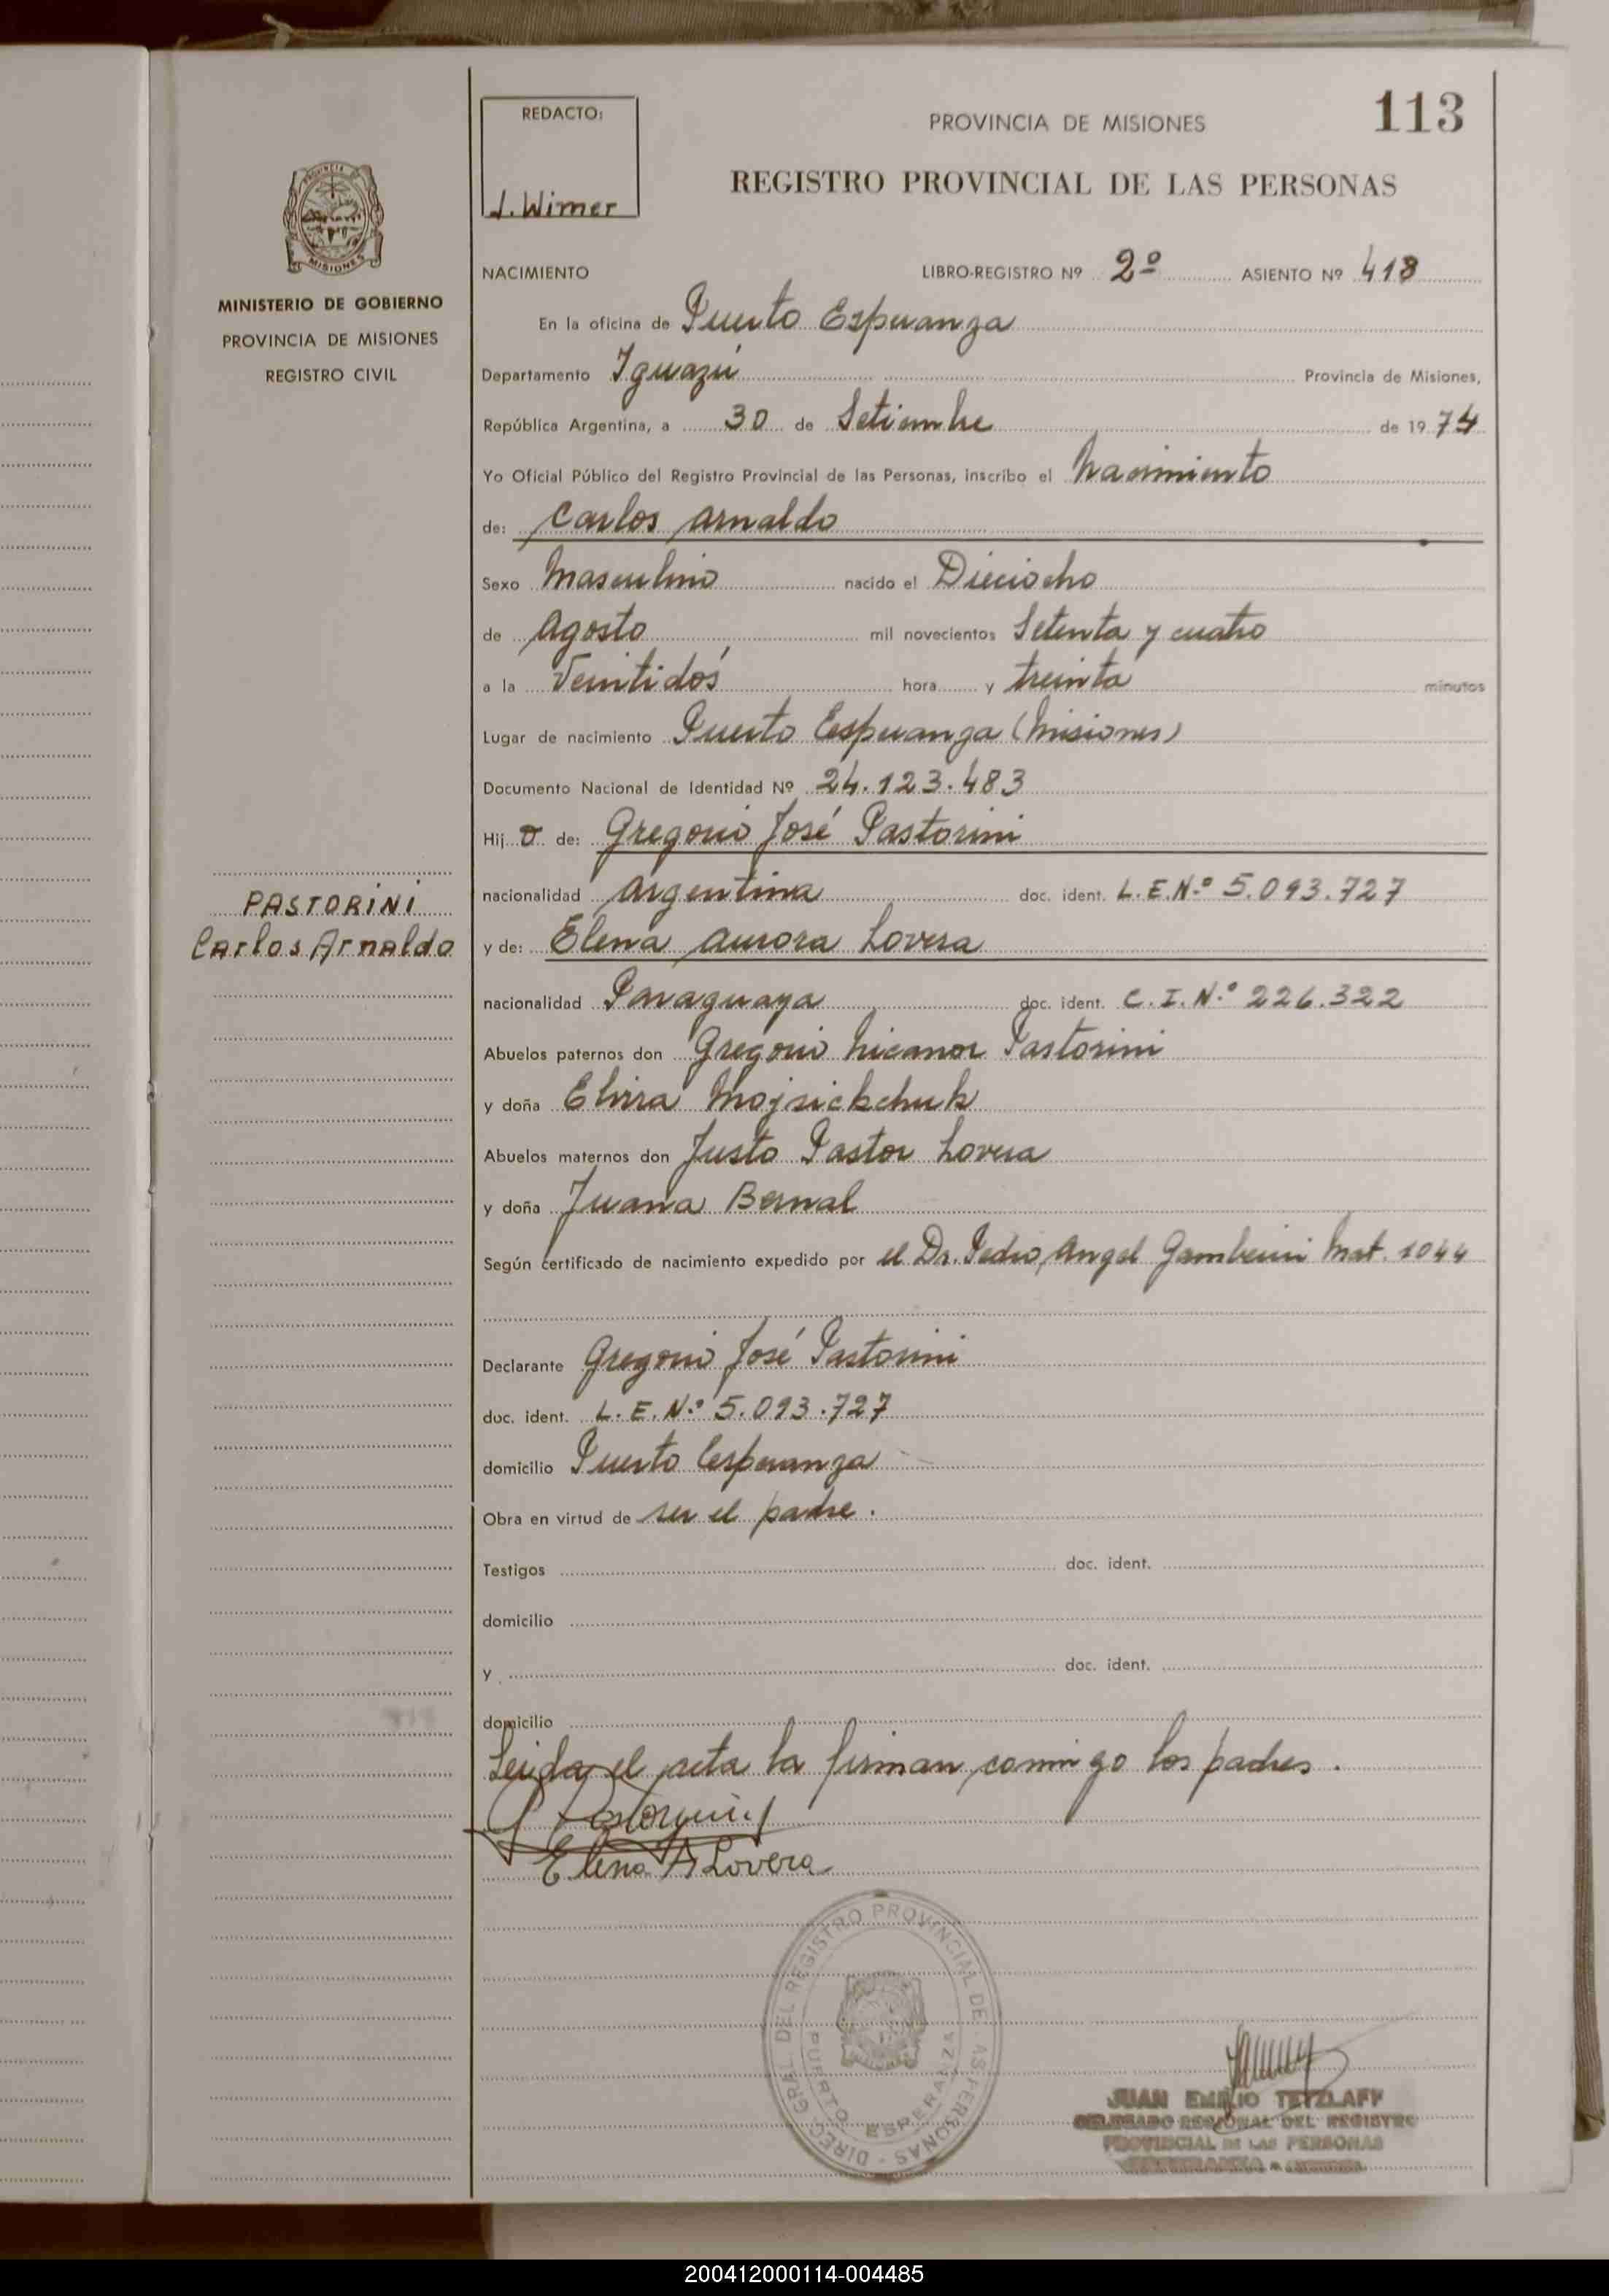 113
REDACTO:
J. Wimer
PROVINCIA DE MISIONES
REGISTRO PROVINCIAL DE LAS PERSONAS
PROVINCIA DE
MISIONES
MINISTERIO DE GOBIERNO
PROVINCIA DE MISIONES
REGISTRO CIVIL
NACIMIENTO LIBRO-REGISTRO Nº 2º ASIENTO Nº 418
En la oficina de Puerto Esperanza
Departamento Iguazú Provincia de Misiones,
República Argentina, a 30 de Setiembre de 1974
Yo Oficial Público del Registro Provincial de las Personas, inscribo el Nacimiento
de: Carlos Arnaldo
Sexo Masculino nacido el Dieciocho
de Agosto mil novecientos Setenta y cuatro
a la Veintidós hora y treinta minutos
Lugar de nacimiento Puerto Esperanza (Misiones)
Documento Nacional de Identidad Nº 24.123.483
Hij o de: Gregorio José Pastorini
nacionalidad Argentina doc. ident. L.E.N.º 5.093.727
PASTORINI
Carlos Arnaldo
y de: Elena Aurora Lovera
nacionalidad Paraguaya doc. ident. C.I.N.º 226.322
Abuelos paternos don Gregorio Nicanor Pastorini
y doña Elvira Mojsickchuk
Abuelos maternos don Justo Pastor Lovera
y doña Juana Bernal
Según certificado de nacimiento expedido por el Dr. Pedro Angel Gamberini Mat. 1044
Declarante Gregorio José Pastorini
doc. ident. L.E.N.º 5.093.727
domicilio Puerto Esperanza
Obra en virtud de ser el padre.
Testigos doc. ident.
domicilio
y doc. ident.
domicilio
Leida el acta la firman comigo los padres.
G Pastorini
Elena A Lovera
DIRECC. GRAL. DEL REGISTRO PROVINCIAL DE LAS PERSONAS -
PUERTO ESPERANZA
JUAN EMILIO TETZLAFF
DELEGADO REGIONAL DEL REGISTRO
PROVINCIAL DE LAS PERSONAS
ESPERANZA -
200412000114-004485